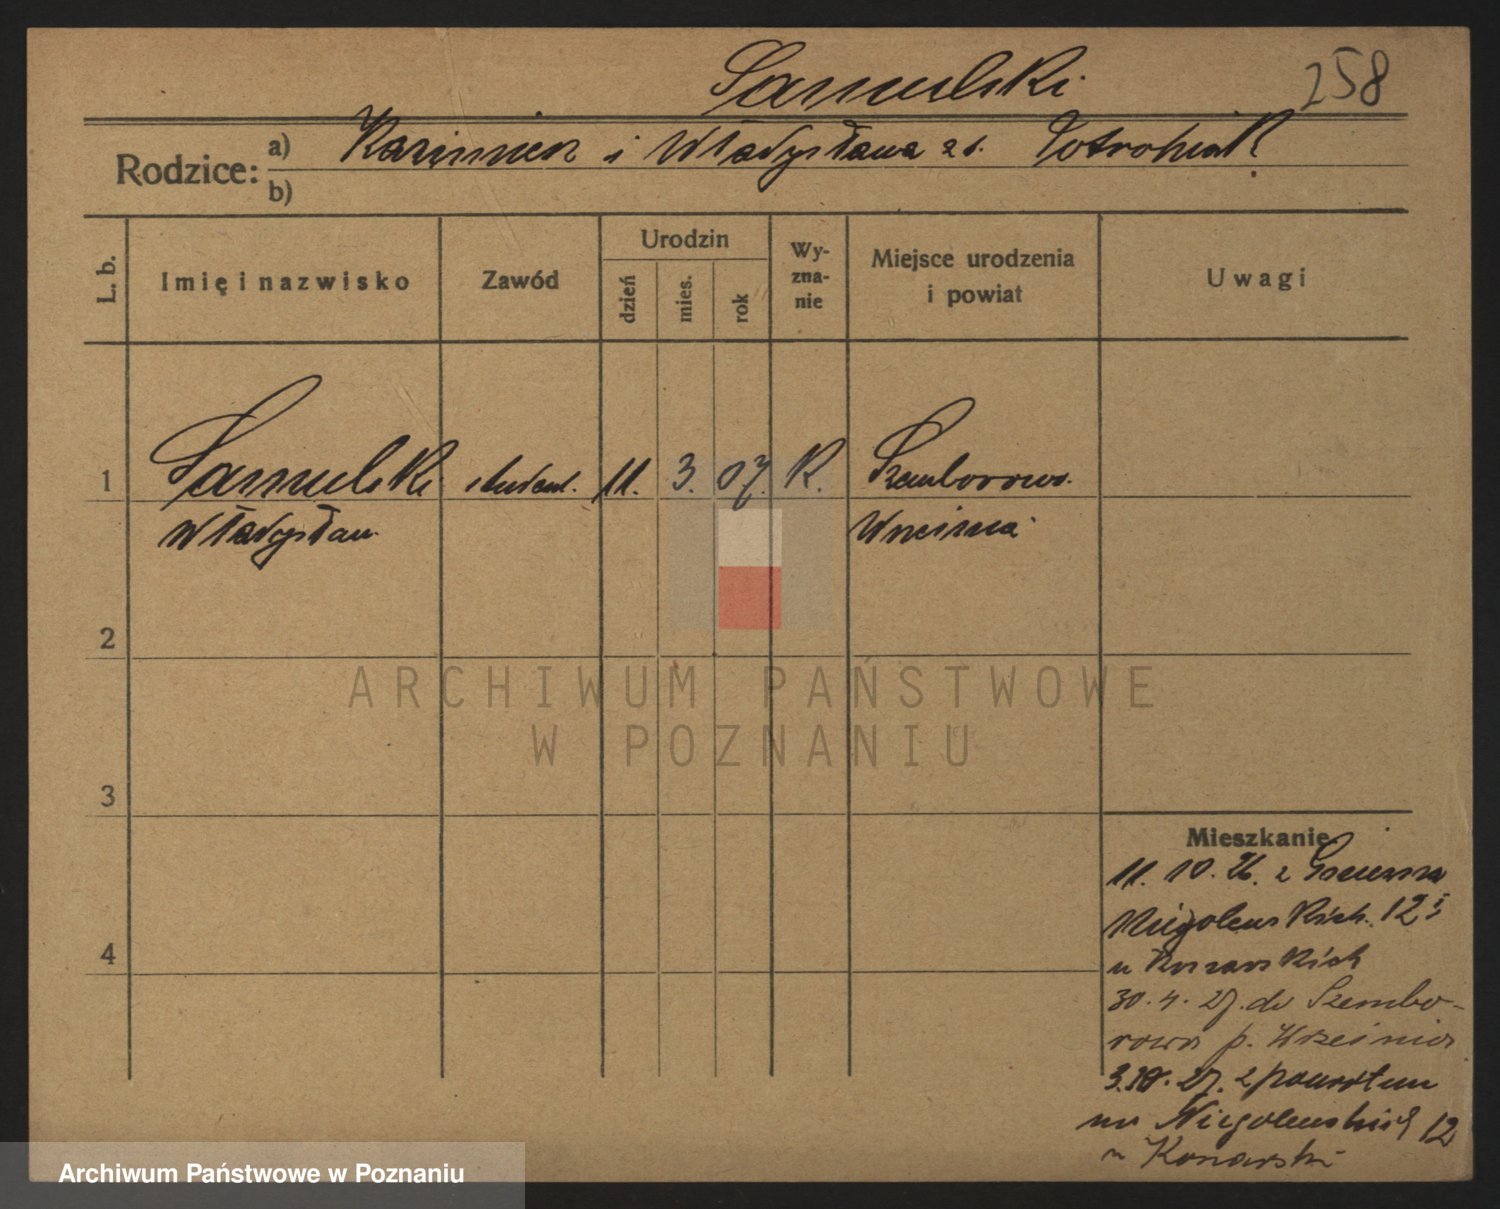 Samulski 258
Rodzice: a) Kazimierz i Władysława zd.
b)
L. b.
Imię i nazwisko
Zawód
Urodzin
dzień
mies.
rok
Wy-
zna-
nie
Miejsce urodzenia
i powiat
Uwagi
1 Samulski student. 11. 3. 07. K. Szemborowo.
Władysław Września
2
3
4
ARCHIWUM PAŃSTWOWE
W POZNANIU
Mieszkanie
11. 10. 26. z Gniezna
Niegolewskich. 12 I
u Konarskich
30. 4. 27. do Szembo-
rowo p. Września
3.10. 27. z powrotem
na Niegolewskich 12
u Konarski
Archiwum Państwowe w Poznaniu